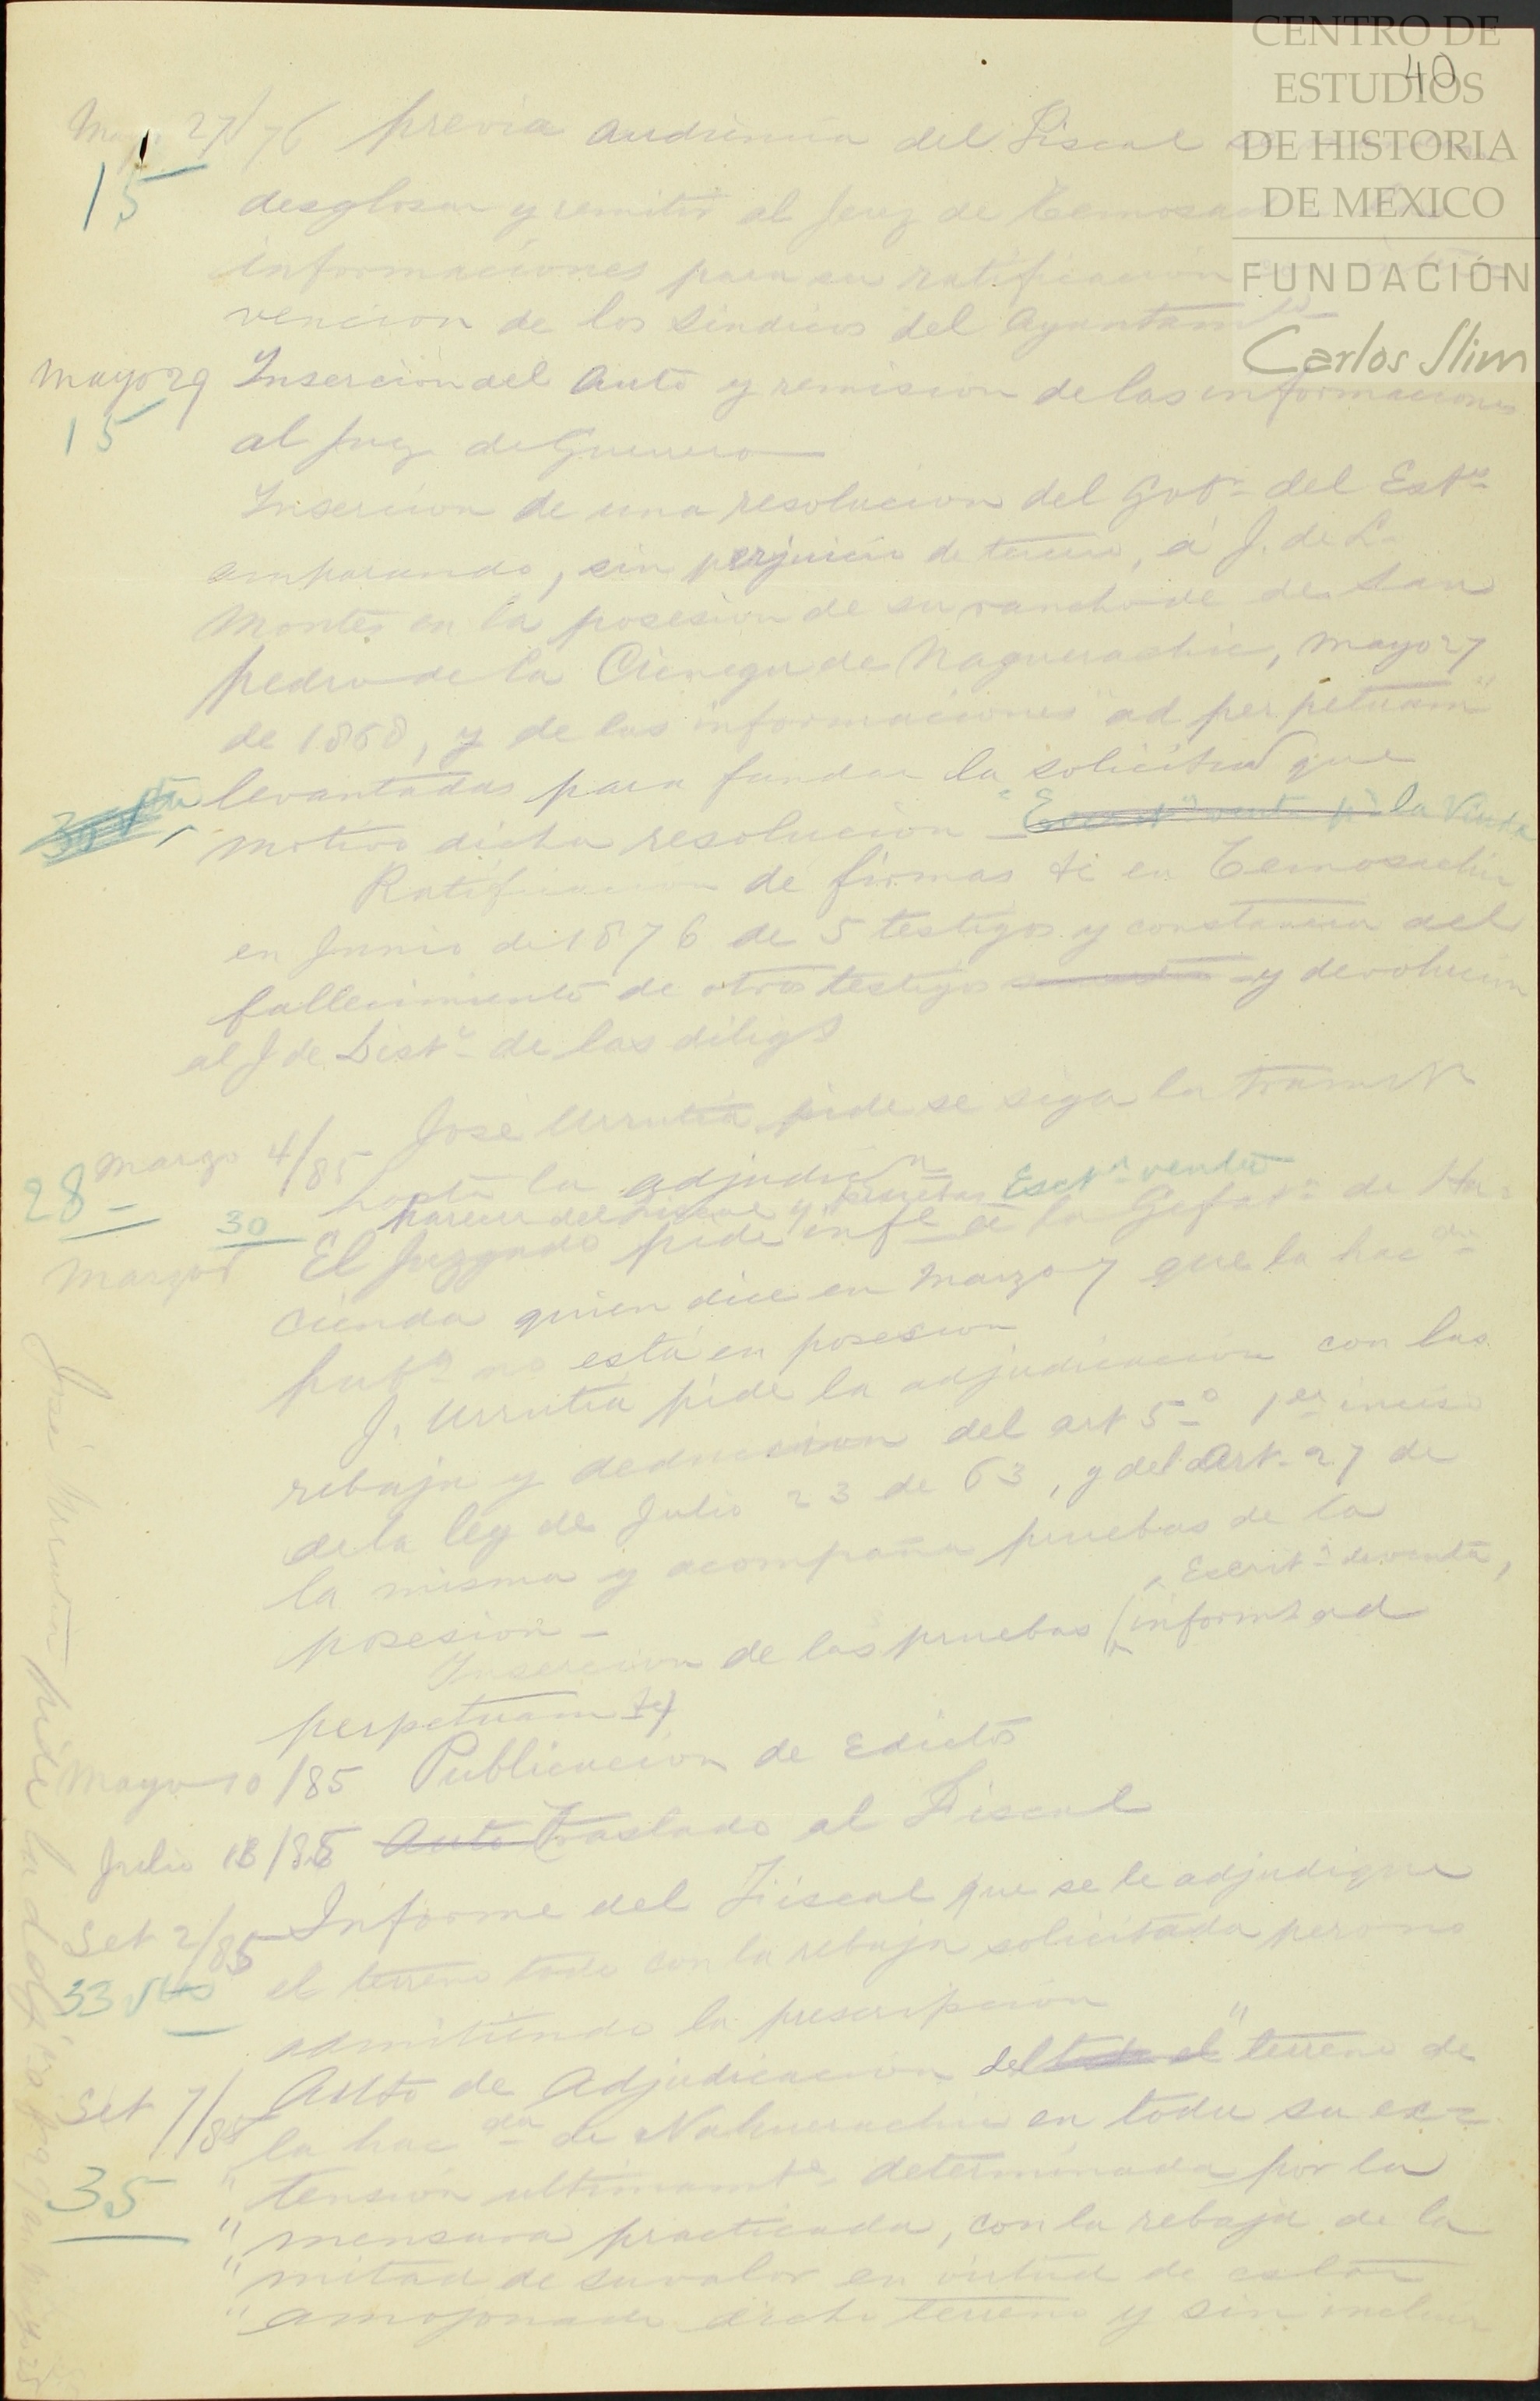 CENTRO DE
ESTUDIOS
DE HISTORIA
DE MEXICO
FUNDACIÓN
Carlos Slim
40
Mayo 27/76 previa audiencia del Fiscal
15
desglosar y remitir al Juez de Temosachi
informaciones para su ratificación
vencion de los Sindicos del Ayuntamto
Mayo 29 Insercion del Auto y remision de las informaciones
15
al Juez de Guerrero
Insercion de una resolucion del Gobo del Esto
amparando, sin perjuicio de tercero, á J. de L.
Montes en la posesion de su rancho de de San
Pedro de la Cienega de Naguerachic, Mayo 27
de 1868, y de las informaciones "ad perpetuam"
levantadas para fundar la solicitud que
motivó dicha resolucion la Viuda
Ratificacion de firmas &c en Temosachic
en Junio de 1876 de 5 testigos y constancia del
fallecimiento de otros testigos y devolucion
al J de Disto de las diligs
Marzo 4/85 José Urrutia pide se siga la tramon
28
hasta la adjudicn
30 Parecer del Fiscal y pruebas Escra venta
Marzo 5 El Juzgado pide infe á la Gefata de Ha-
cienda quien dice en Marzo 7 que la hacda
puba no está en posesion
J. Urrutia pide la adjudicacion con las
rebaja y deduccion del art 5o 1er inciso
de la ley de Julio 23 de 63, y del Art. 27 de
la misma y acompaña pruebas de la
posesion -
Escrita de venta,
Insercion de las pruebas (informs ad
perpetuam &)
Mayo 10/85 Publicacion de Edictos
Julio 18/85 Auto Traslado al Fiscal
Set 2/85 Informe del Fiscal que se le adjudique
33 vta
el terreno todo con la rebaja solicitada pero no
admitiendo la prescripcion
Set 7/85 Auto de Adjudicacion del todo el " terreno de
35
la hacda de Nahuerachic en toda su ex-
" tension ultimamte determinada por la
" mensura practicada, con la rebaja de la
" mitad de su valor en virtud de estar
" amojonado dicho terreno y sin incluir
José Urrutia pide la